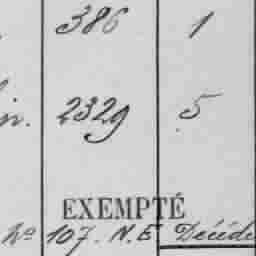 386 1
in. 2329 5
EXEMPTÉ
No 107. N.E Décédé